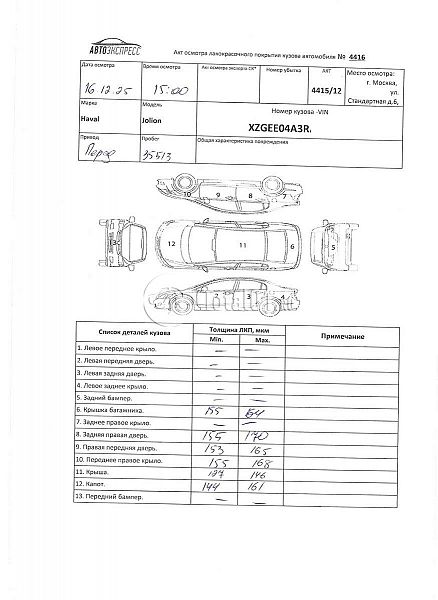 АВТОЭКСПРЕСС
Акт осмотра лакокрасочного покрытия кузова автомобиля № 4416
Дата осмотра Время осмотра Акт осмотра эксперта СК* Номер убытка АКТ Место осмотра:
16.12.25 15:00 4415/12 г. Москва,
ул.
Стандартная д.6,
Марка Модель Номер кузова -VIN
Haval Jolion XZGEE04A3R.
Привод Пробег Общая характеристика повреждений
Перед 35513
10 9 8 7
13 12 11 6 5
1 2 3 4
Список деталей кузова Толщина ЛКП, мкм Примечание
Min. Max.
1. Левое переднее крыло. — —
2. Левая передняя дверь. — —
3. Левая задняя дверь. — —
4. Левое заднее крыло. — —
5. Задний бампер. — —
6. Крышка багажника. 155
7. Заднее правое крыло. — —
8. Задняя правая дверь. 155 170
9. Правая передняя дверь. 153 165
10. Переднее правое крыло. 155 168
11. Крыша. 146
12. Капот. 144 161
13. Передний бампер. — —